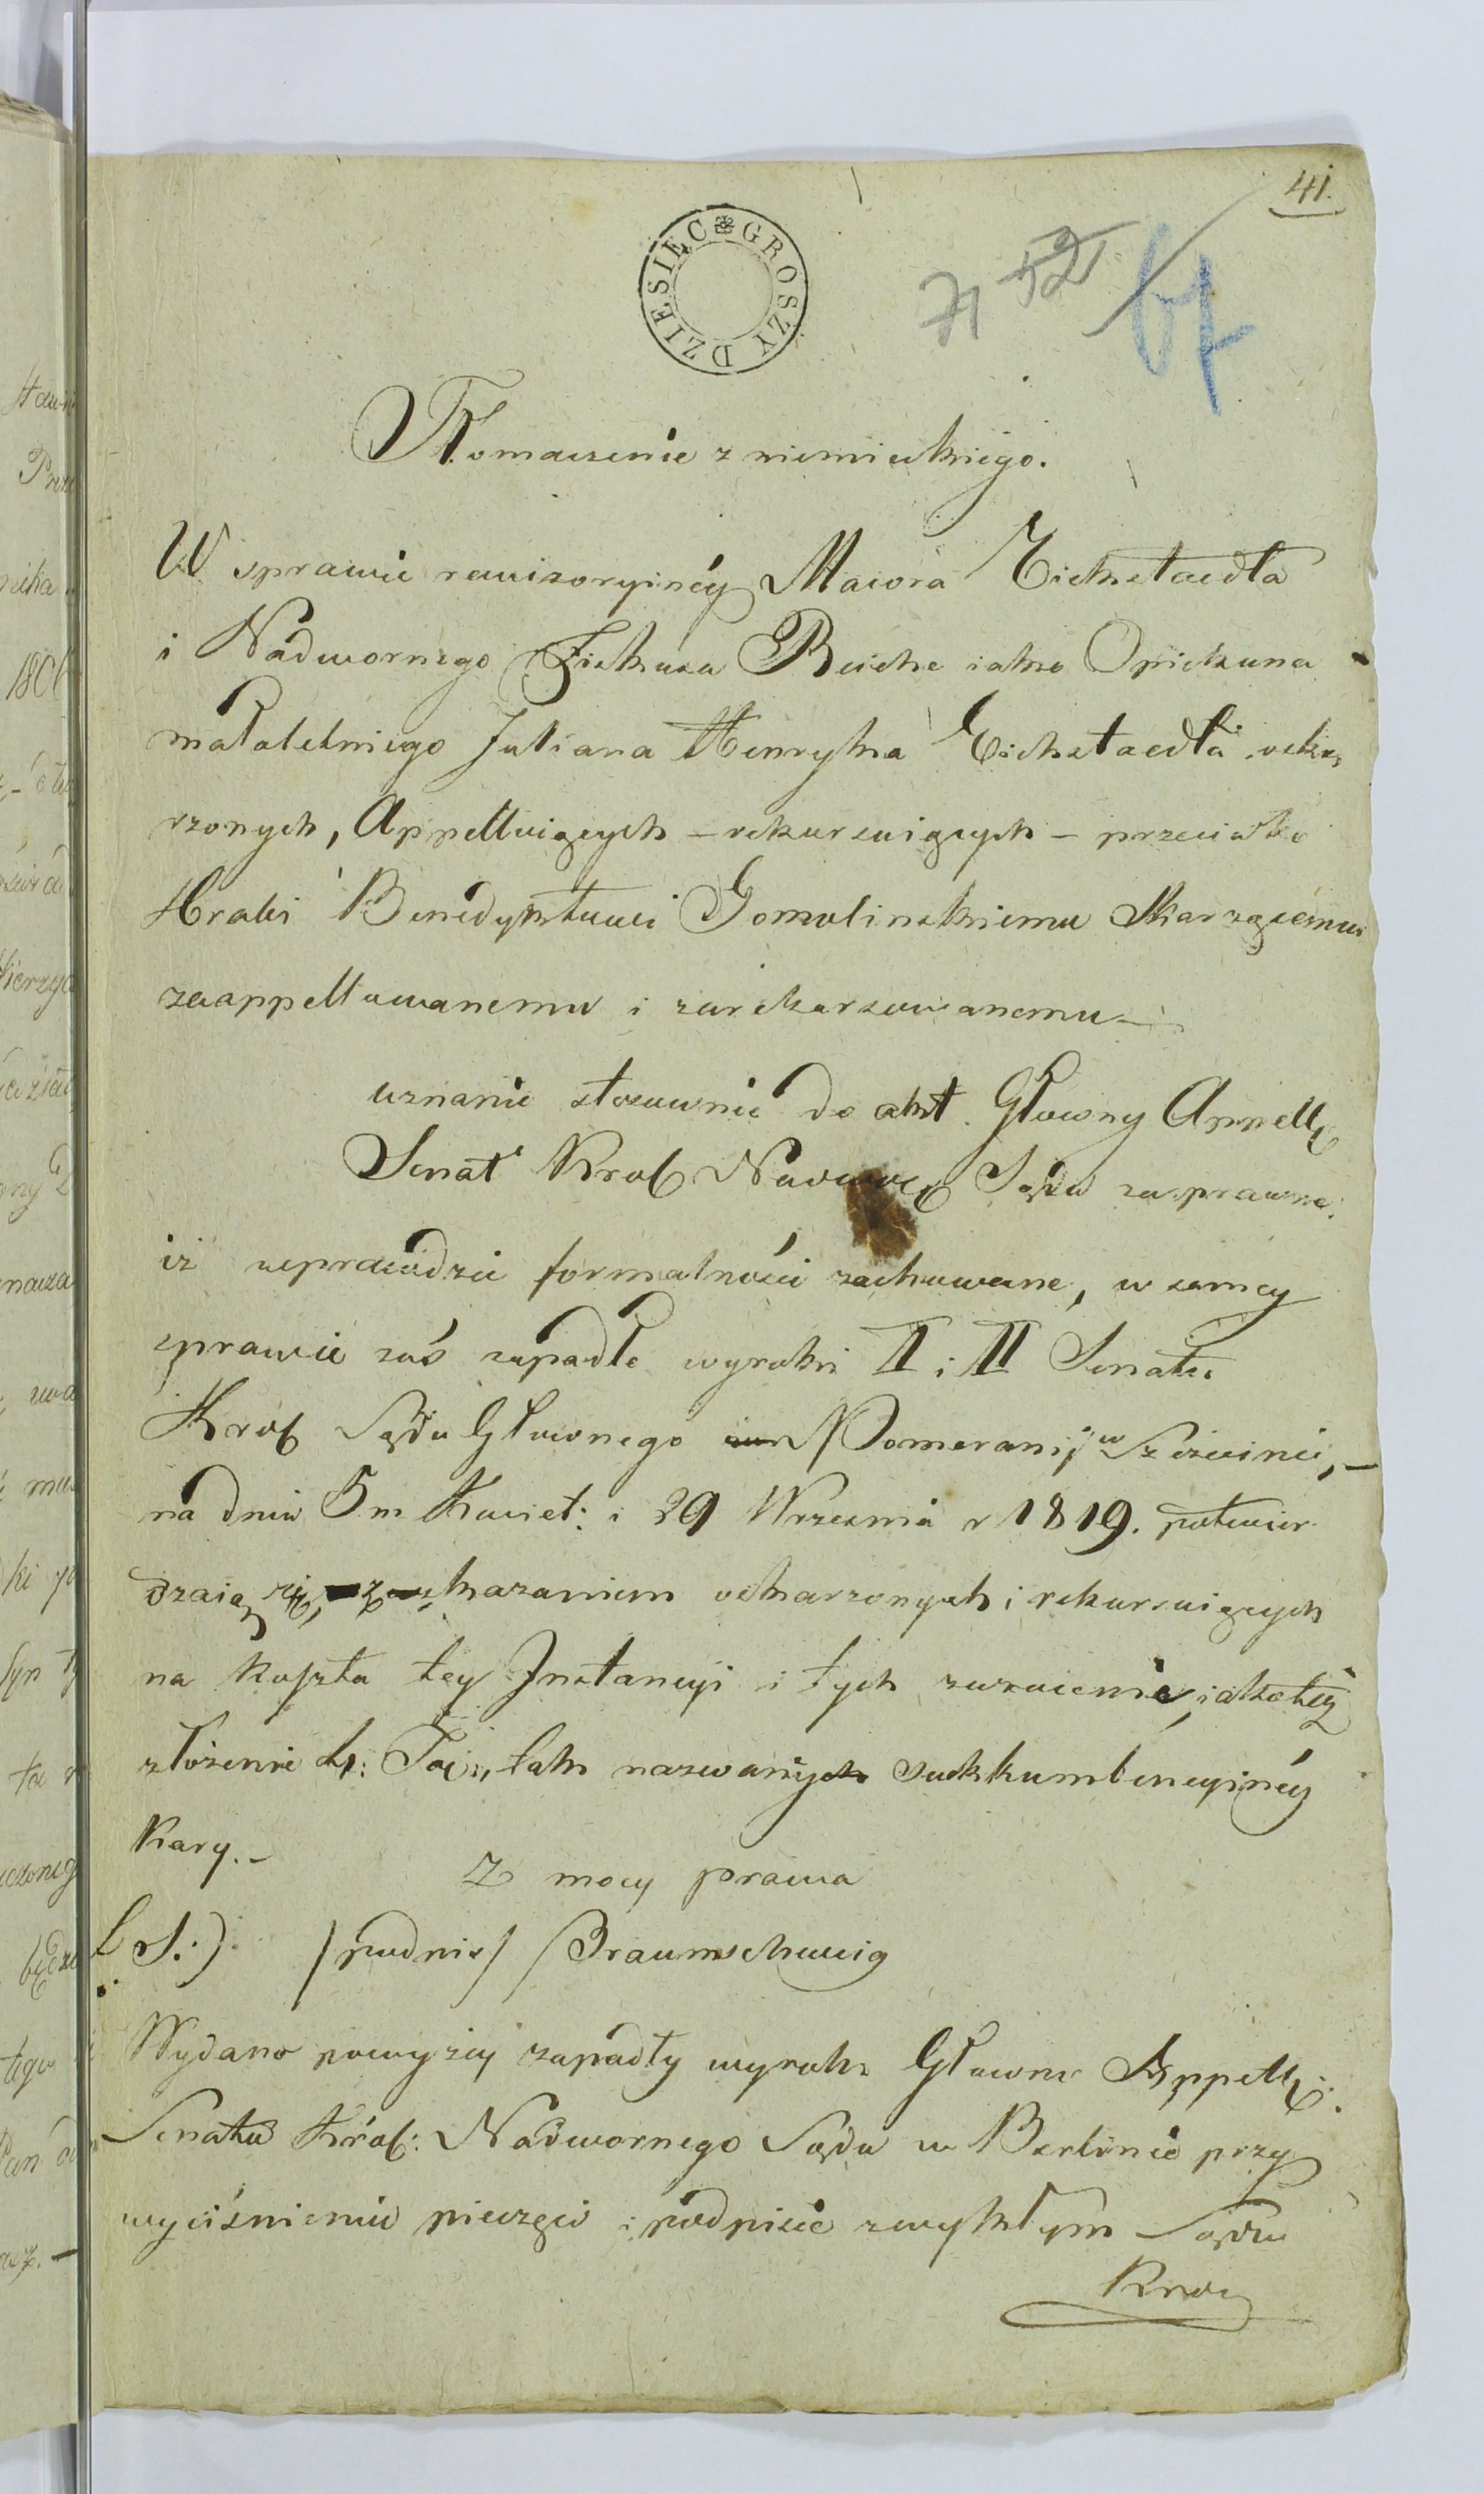 41.
DZIESIĘC GROSZY
71 52 67
Tłomaczenie z niemieckiego.
W sprawie rewizoryinéy Maiora Eickstaedta
i Nadwornego Fiskusa Reiche iako Opiekuna
małoletniego Juliana Henryka Eickstaedta oskar
rzonych, Appelluiących – rekursuiących – przeciwko
Hrabi Benedyktowi Gomolinskiemu Skarzącemu
zaappellowanemu i zarekursowanemu –
uznanie stosownie do akt. Głowny Appell:
Senat Krol: Nadwor: Sądu za prawne
iż wprawdzie formalności zachowane, w samey
sprawie zaś zapadłe wyroki I i II Senatu
Krol: Sądu Głownego Pomeranij w Szczecinie, –
na dniu 5 m Kwiet: i 29 Września r 1819. potwier
dzaią się, z skazaniem oskarzonych i rekursuiących
na koszta tey Instancyi i tych zwrocenie, iakoteż
złożenie tak nazwanéy Sukkumbencyinéy
Kary. –
Z mocy prawa
L. S.:) /podpis/ Braunschweig
Wydano powyżey zapadły wyrok Głowne Appell:
Senatu Król: Nadwornego Sądu w Berlinie przy
wyciśnieniu pieczęci i podpisie zwykłym Sądu